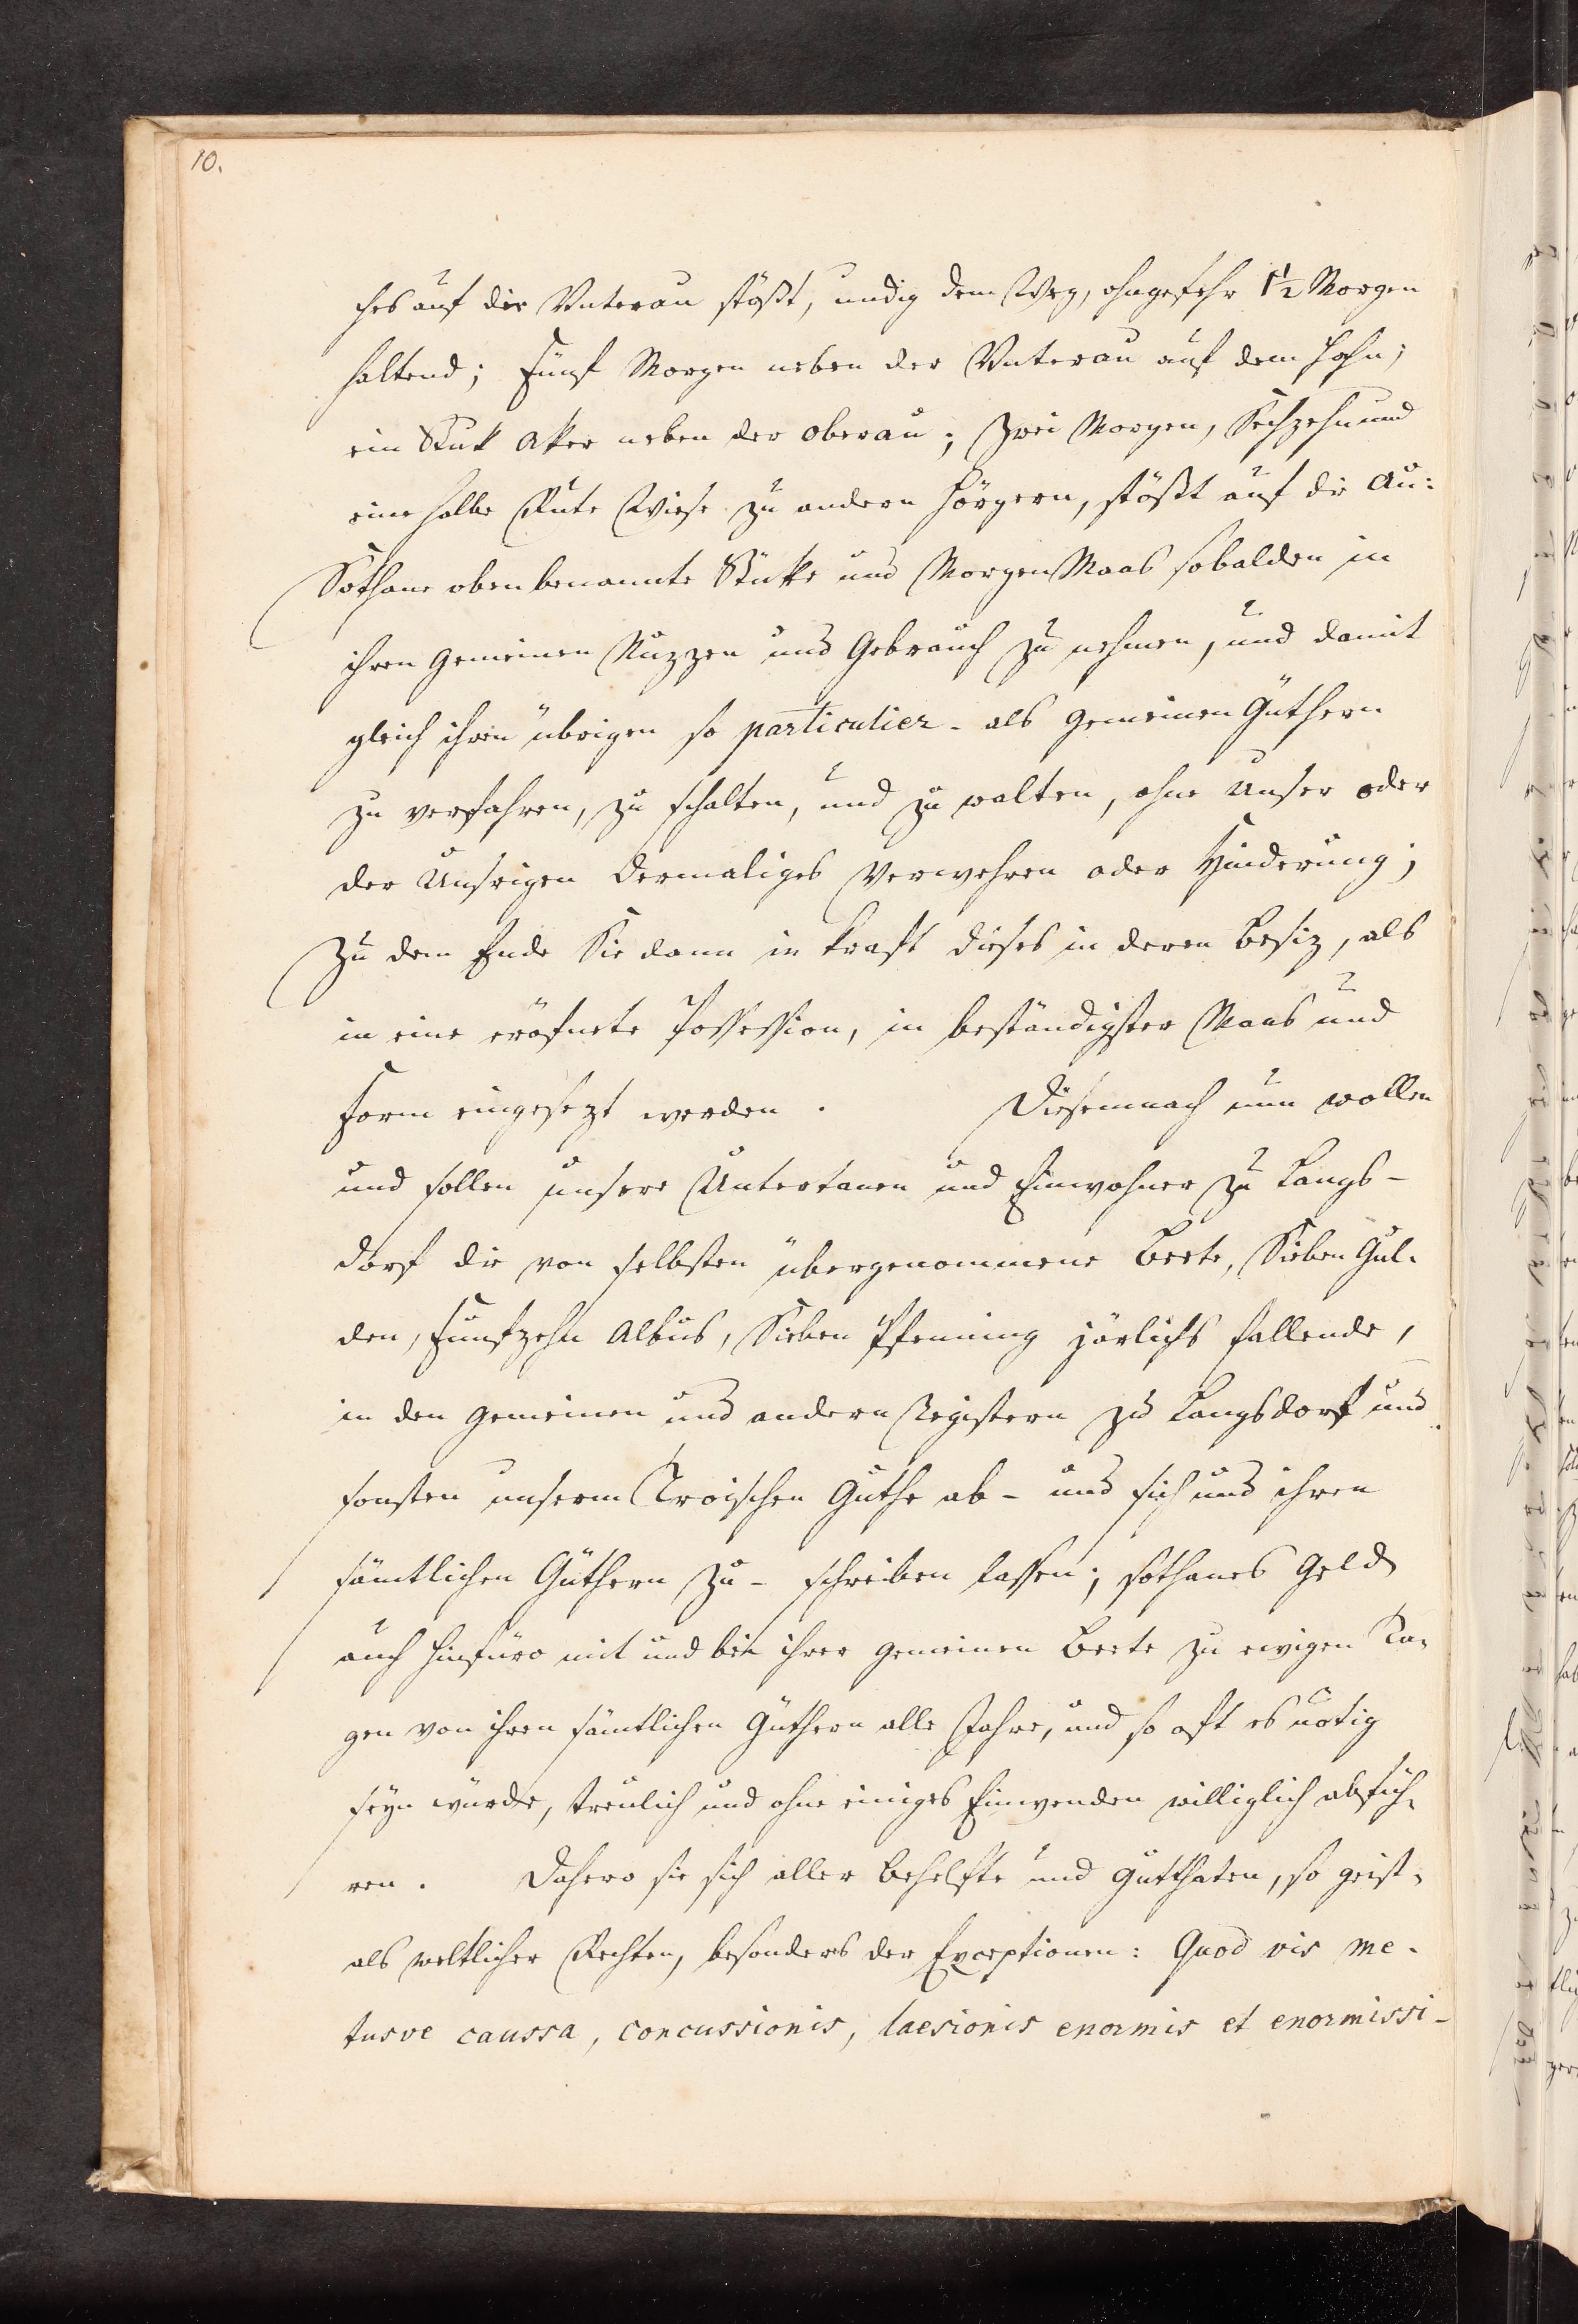 10.
ches auf die Unterau stößt, undig dem Weg, ohngefehr 1½ Morgen
haltend; Fünf Morgen neben der Unterau auf dem Hahn;
ein Stuk Aker neben der Oberau; Zwei Morgen, Sechzehn und
eine halbe Rute Wiese zu andern Hörgern, stößt auf die Au:
Sothane oben benannte Stükke und Morgen Maas sobalden in
ihren gemeinen Nuzzen und Gebrauch zu nehmen, und damit
gleich ihren übrigen so particulier- als gemeinen Güthern
zu verfahren, zu schalten, und zu walten, ohne Unser oder
der Unsrigen dermaliges Verwehren oder Hinderung;
Zu dem Ende Sie dann in kraft dieses in deren Besiz, als
in eine eröfnete Possession, in beständigster Maas und
Form eingesezt werden. Diesemnach nun wollen
und sollen unsere Untertanen und Einwohner zu Langs-
dorf die von selbsten übergenommene Beete, Sieben Gul-
den, Funfzehn Albus, Sieben Pfenning järlichs fallende,
in den gemeinen und andern Registern zu Langsdorf und
sonsten unserm Troischen Guthe ab- und sich und ihren
sämtlichen Güthern zu- schreiben lassen; sothanes Geld
auch hinfüro mit und bei ihrer gemeinen Beete zu ewigen Ta-
gen von ihren sämtlichen Güthern alle Jahre, und so oft es nötig
seyn würde, treulich und ohne einiges Einwenden williglich abfüh-
ren. Dahero sie sich aller Behelfte und Gutthaten, so geist-
als weltlicher Rechten, besonders der Exceptionen: Quod vis me-
tusve caussa, concussionis, laesionis enormis et enormissi-